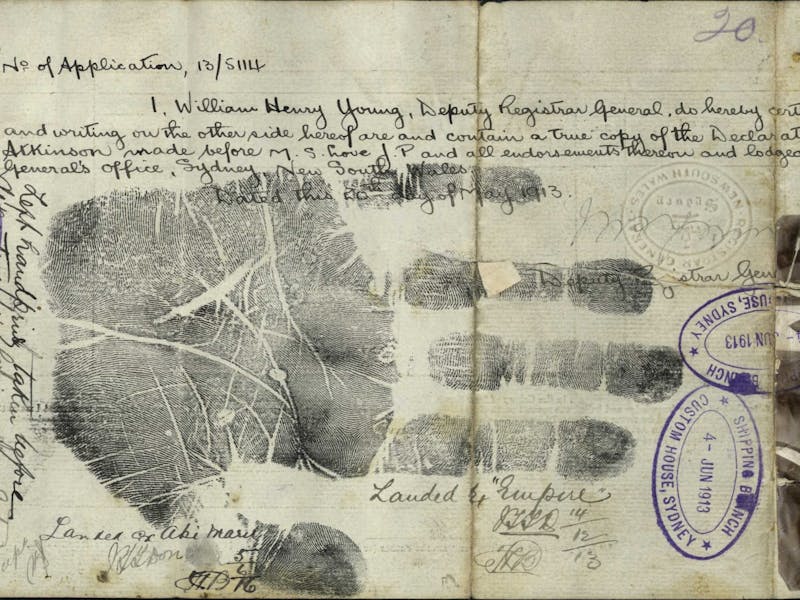 20
No of Application, 13/5114
I, William Henry Young, Deputy Registrar General, do hereby cert
and writing on the other side hereof are and contain a true copy of the Declarat
Atkinson made before M. S. Love J.P and all endorsements thereon and lodged
General's Office, Sydney, New South Wales.
Dated this 20th day of May 1913.
REGISTRAR GENERAL NEW SOUTH WALES
Sydney
Deputy Registrar Gene
Left handprint taken before
HOUSE, SYDNEY
JUN 1913
SHIPPING BRANCH
4 - JUN 1913
CUSTOM HOUSE, SYDNEY
Landed Ex "Empire"
14
12
13
Landed ex Aki Maru
5
6
16